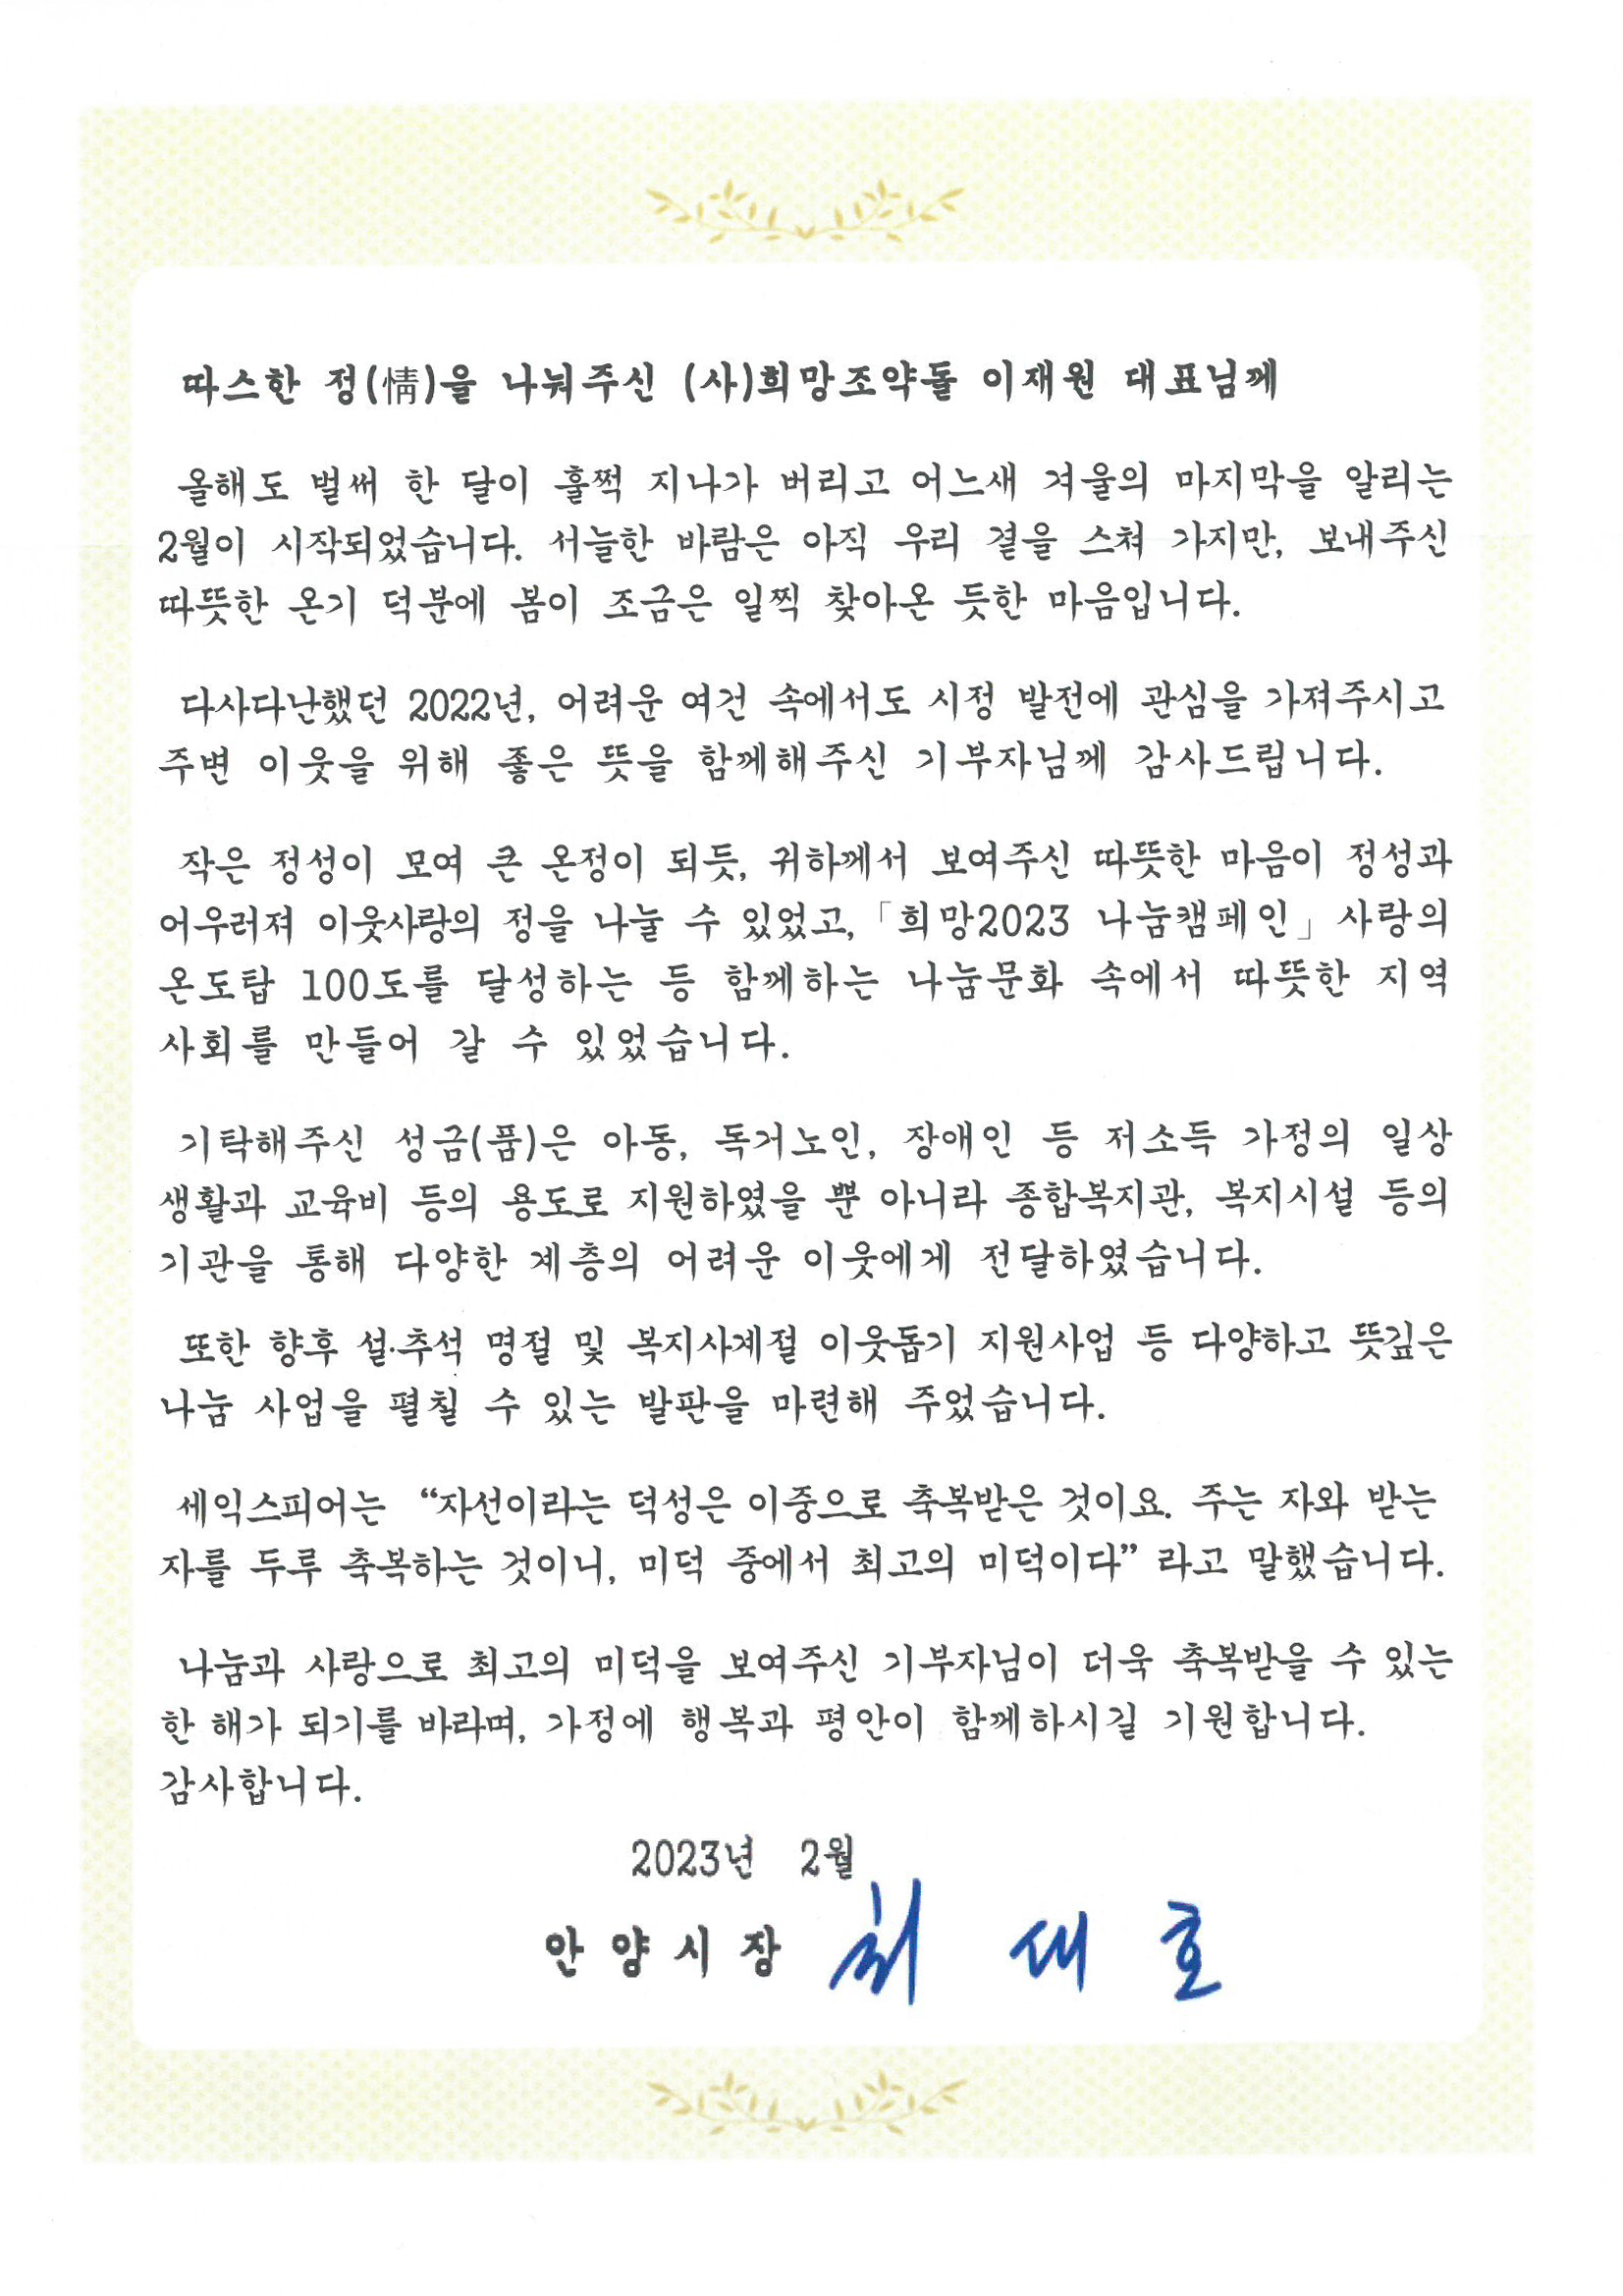 따스한 정(情)을 나눠주신 (사)희망조약돌 이재원 대표님께
올해도 벌써 한 달이 훌쩍 지나가 버리고 어느새 겨울의 마지막을 알리는
2월이 시작되었습니다. 서늘한 바람은 아직 우리 곁을 스쳐 가지만, 보내주신
따뜻한 온기 덕분에 봄이 조금은 일찍 찾아온 듯한 마음입니다.
다사다난했던 2022년, 어려운 여건 속에서도 시정 발전에 관심을 가져주시고
주변 이웃을 위해 좋은 뜻을 함께해주신 기부자님께 감사드립니다.
작은 정성이 모여 큰 온정이 되듯, 귀하께서 보여주신 따뜻한 마음이 정성과
어우러져 이웃사랑의 정을 나눌 수 있었고, 「희망2023 나눔캠페인」 사랑의
온도탑 100도를 달성하는 등 함께하는 나눔문화 속에서 따뜻한 지역
사회를 만들어 갈 수 있었습니다.
기탁해주신 성금(품)은 아동, 독거노인, 장애인 등 저소득 가정의 일상
생활과 교육비 등의 용도로 지원하였을 뿐 아니라 종합복지관, 복지시설 등의
기관을 통해 다양한 계층의 어려운 이웃에게 전달하였습니다.
또한 향후 설·추석 명절 및 복지사계절 이웃돕기 지원사업 등 다양하고 뜻깊은
나눔 사업을 펼칠 수 있는 발판을 마련해 주었습니다.
세익스피어는 “자선이라는 덕성은 이중으로 축복받은 것이요. 주는 자와 받는
자를 두루 축복하는 것이니, 미덕 중에서 최고의 미덕이다” 라고 말했습니다.
나눔과 사랑으로 최고의 미덕을 보여주신 기부자님이 더욱 축복받을 수 있는
한 해가 되기를 바라며, 가정에 행복과 평안이 함께하시길 기원합니다.
감사합니다.
2023년 2월
안양시장 최대호